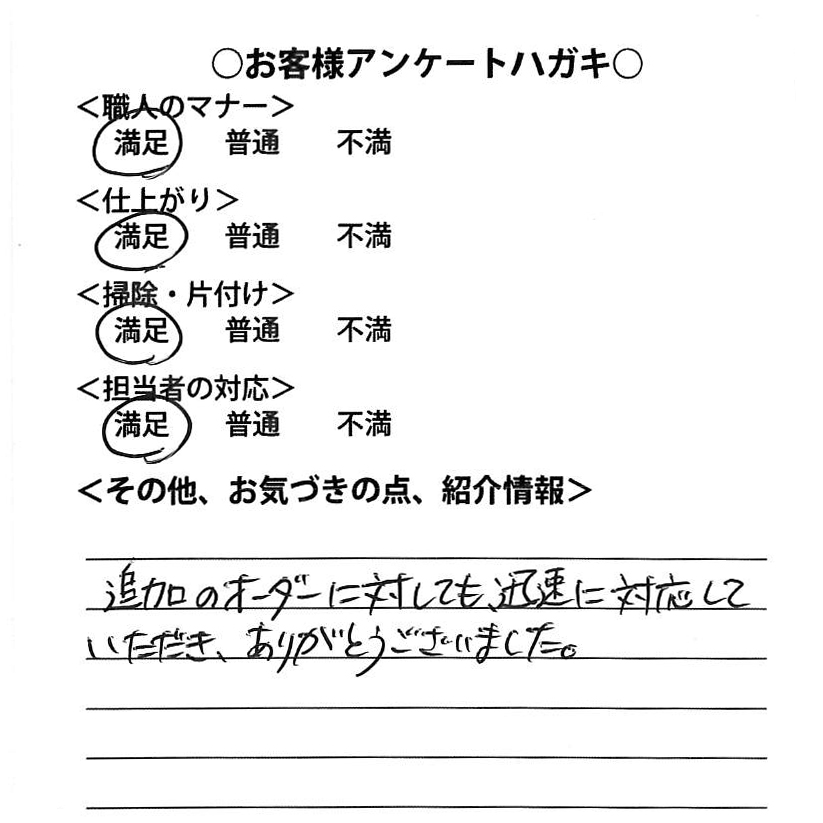 ○お客様アンケートハガキ○
＜職人のマナー＞
満足 普通 不満
＜仕上がり＞
満足 普通 不満
＜掃除・片付け＞
満足 普通 不満
＜担当者の対応＞
満足 普通 不満
＜その他、お気づきの点、紹介情報＞
追加のオーダーに対しても、迅速に対応して
いただき、ありがとうございました。